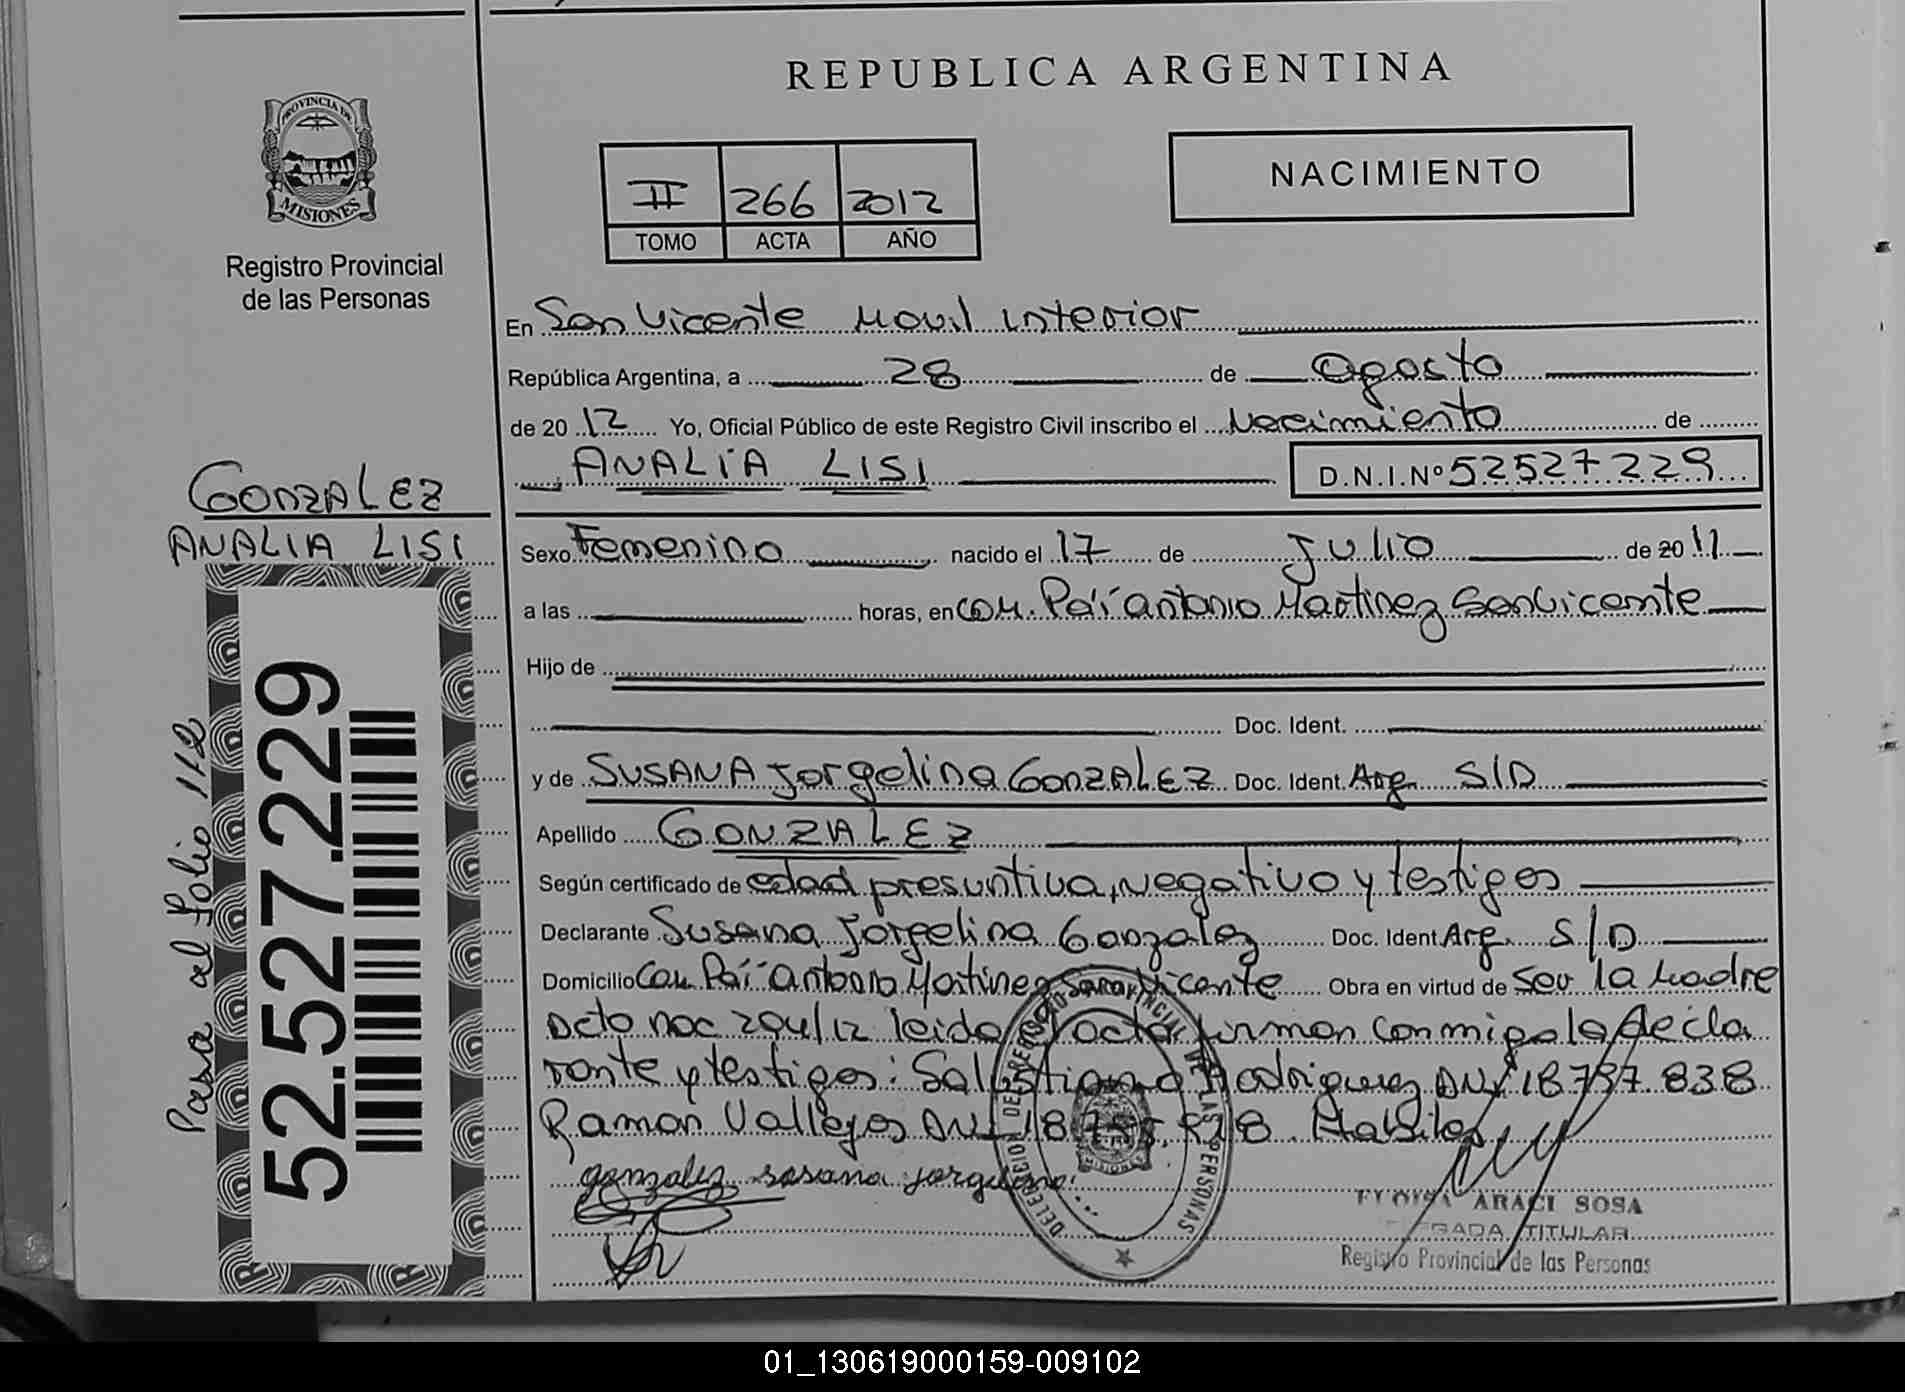 REPUBLICA ARGENTINA
PROVINCIA DE
MISIONES
Registro Provincial
de las Personas
II 266 2012
TOMO ACTA AÑO
NACIMIENTO
En San Vicente Movil interior
República Argentina, a 28 de agosto
de 2012 Yo, Oficial Público de este Registro Civil inscribo el Nacimiento de
ANALIA LISI D.N.I.Nº 52527229
GONZALEZ
ANALIA LISI
Sexo Femenino nacido el 17 de Julio de 2011
a las horas, en com. Pai Antonio Martinez San Vicente
Hijo de
Doc. Ident.
y de SUSANA Jorgelina GONZALEZ Doc. Ident. Arg. S/D
Apellido GONZALEZ
Según certificado de edad presuntiva, negativo y testigos
Declarante Susana Jorgelina Gonzalez Doc. Ident Arg. S/D
Domicilio Com Pai Antonio Martinez San Vicente Obra en virtud de Ser la Madre
Dcto nac 204/12 leido acta firman conmigo la decla
rante y testigos: Rodriguez DNI 18737.838
Ramon Vallejos DNI Habiles
gonzalez sosana jorgelina
DELEGACION DEL REGISTRO PROVINCIAL DE LAS PERSONAS
MISIONES
ELOISA ARACI SOSA
DELEGADA TITULAR
Registro Provincial de las Personas
Pasa al folio 112
52.527.229
01_130619000159-009102